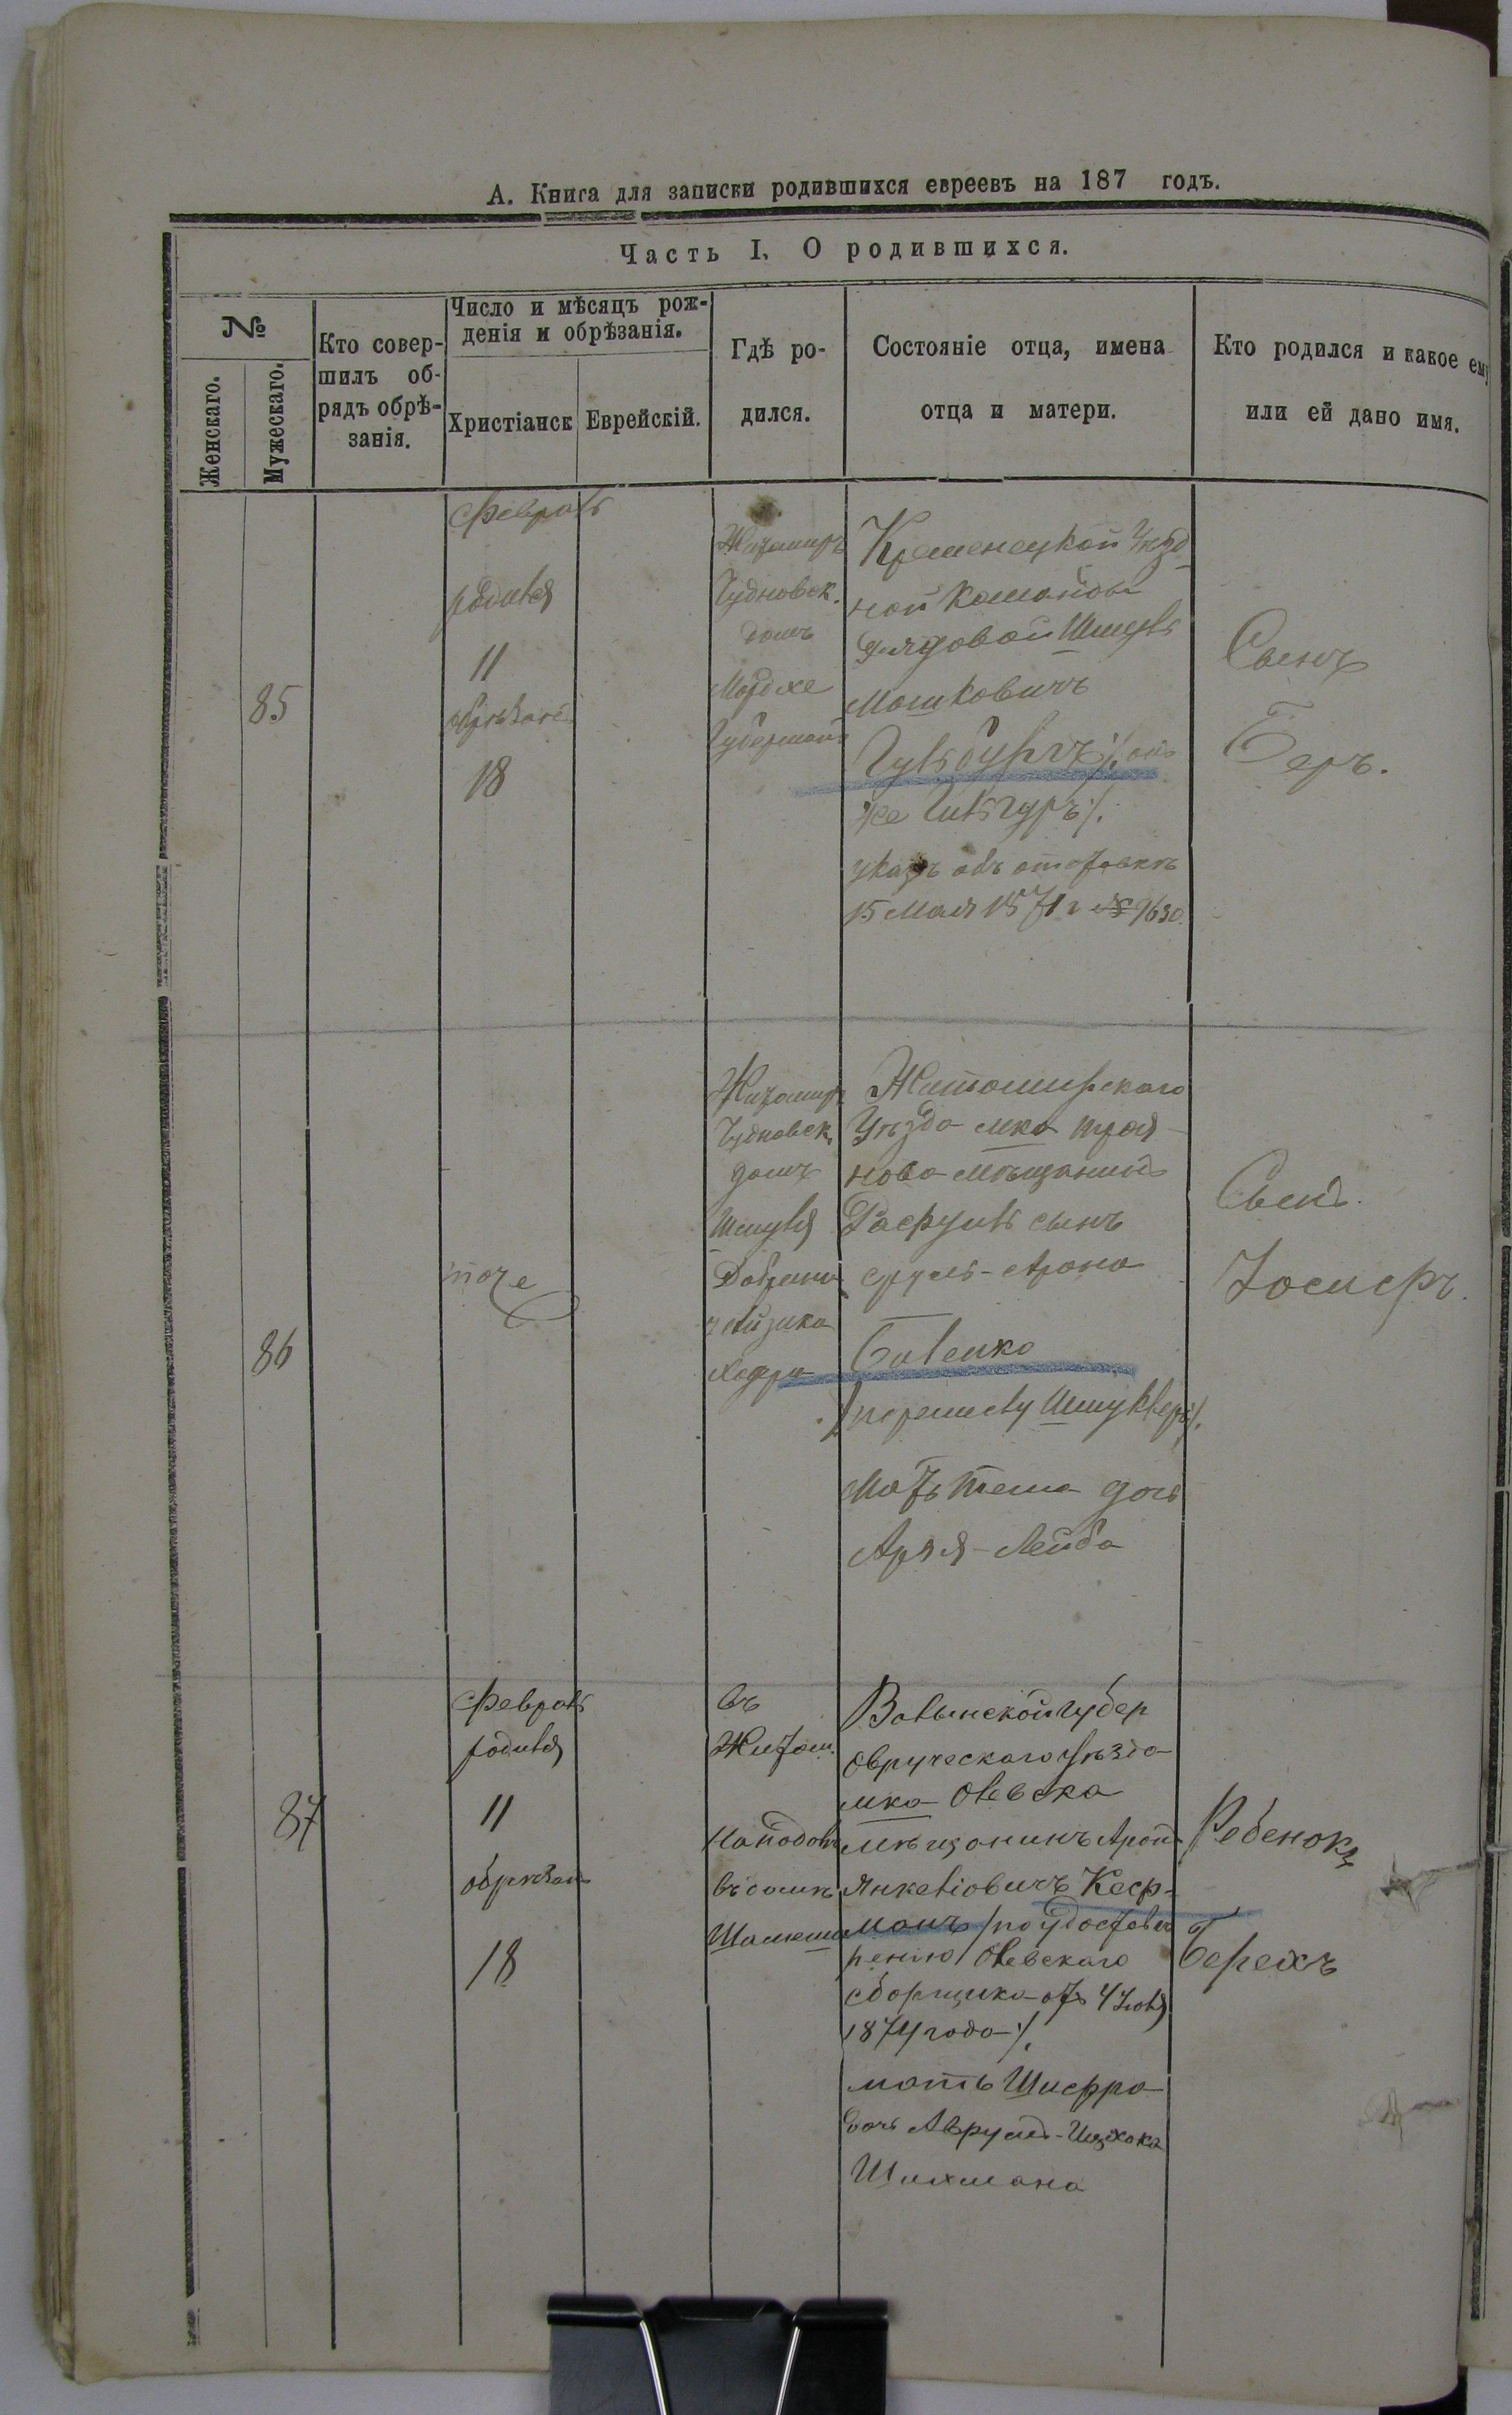 А. Книга для записки родившихся евреевъ на 187 годъ.
Часть I. О родившихся.
№
Женскаго.
Мужескаго.
Кто совер-
шилъ об-
рядъ обрѣ-
занія.
Число и мѣсяцъ рож-
денія и обрѣзанія.
Христіанск
Еврейскій.
Гдѣ ро-
дился.
Состояніе отца, имена
отца и матери.
Кто родился и какое ему
или ей дано имя.
85
Февраль
родился
11
обрѣзанъ
18
Житомиръ
Чудновск.
домъ
Мордхе
Губермана
Кременецкой Уѣзд
ной Команды
рядовой Шмуль
Мошковичъ
онъ
же
указъ объ отставкѣ
15 Мая 1871 г № 9630.
Сынъ
Беръ.
86
тоже
Житомиръ
Чудновск.
домъ
Шмуля
Житомирскаго
Уѣзда мка Троя
нова мѣщанинъ
Рафуль сынъ
Сруль-Арона
Мать тема дочь
Аръя-Лейба
Сынъ
Іосифъ.
87
Февраль
родился
11
обрѣзанъ
18
въ
Житом.
на подолѣ
въ домѣ
Волынской губер
Овруческаго Уѣзда
мка Олевска
мѣщанинъ Аронъ
Янкеліовичъ Кеср-
манъ /по удостовѣ
ренію Олевскаго
сборщика отъ 4 Іюля
1874 года/.
мать Шифра
дочь Аврумъ-Ицхока
Шихмана
Ребенокъ
Берехъ